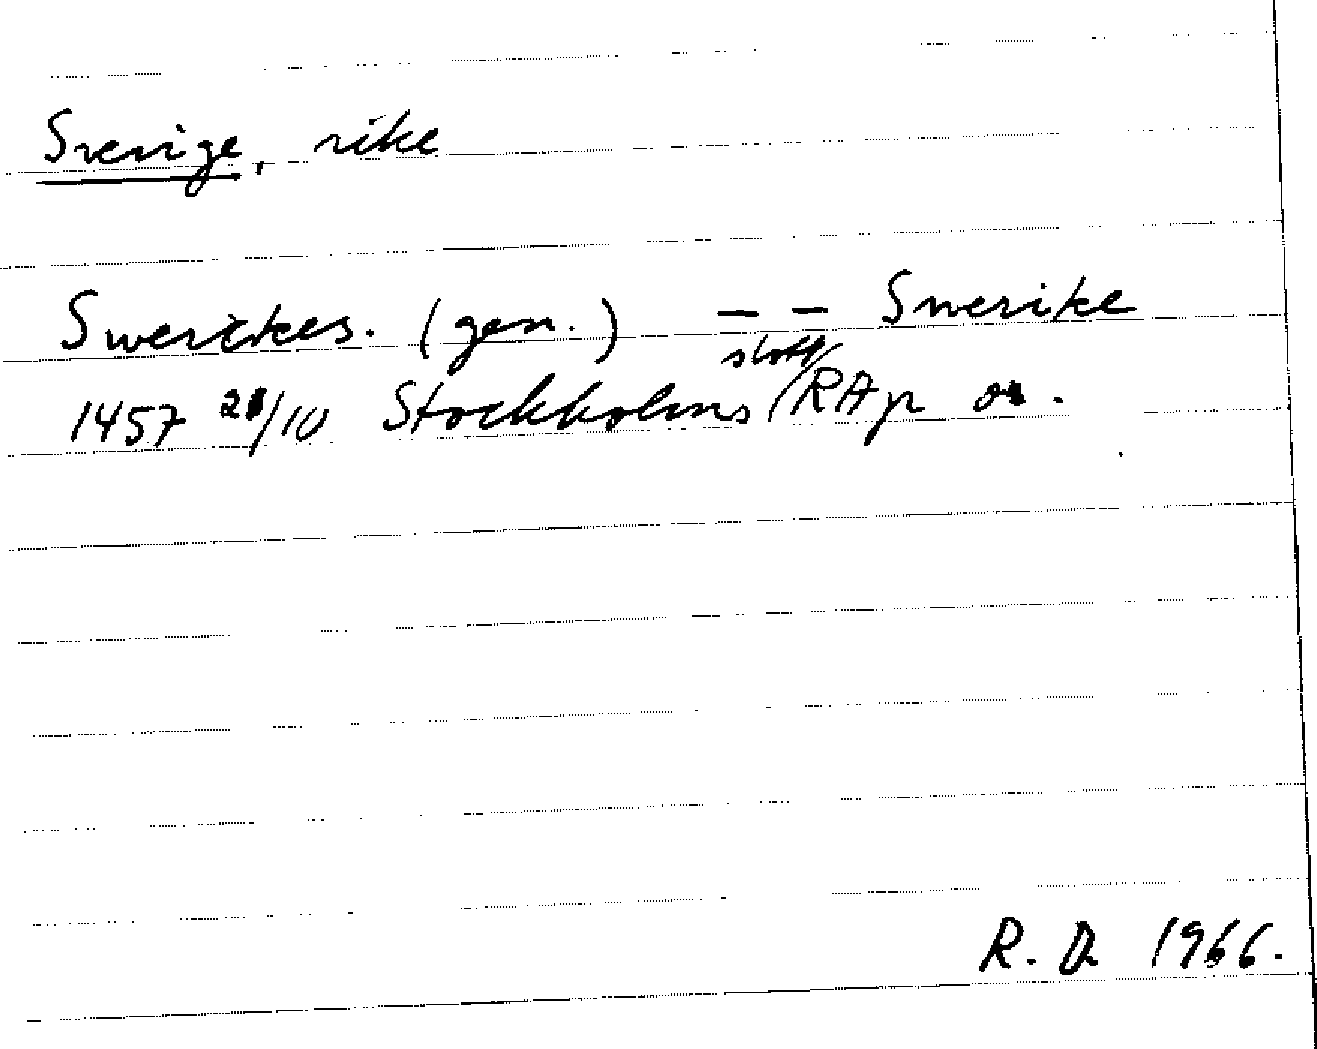 Sverige, rike
Swerikes. (gen.) — — Swerike
slott
1457 28/10 Stockholms / RAp or.
R. D. 1966.